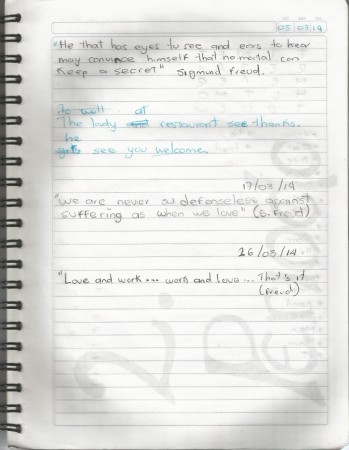 05 03 14
"He that has eyes to see and ears to hear
may convince himself that no mortal can
keep a secret" Sigmund Freud.
to well at
The lady restaurant see thanks.
he
see you welcome.
17/03/14
"We are never so defenseless against
suffering as when we love" (S. Freid)
26/03/14.
"Love and work... work and love... That's it
(Freud)